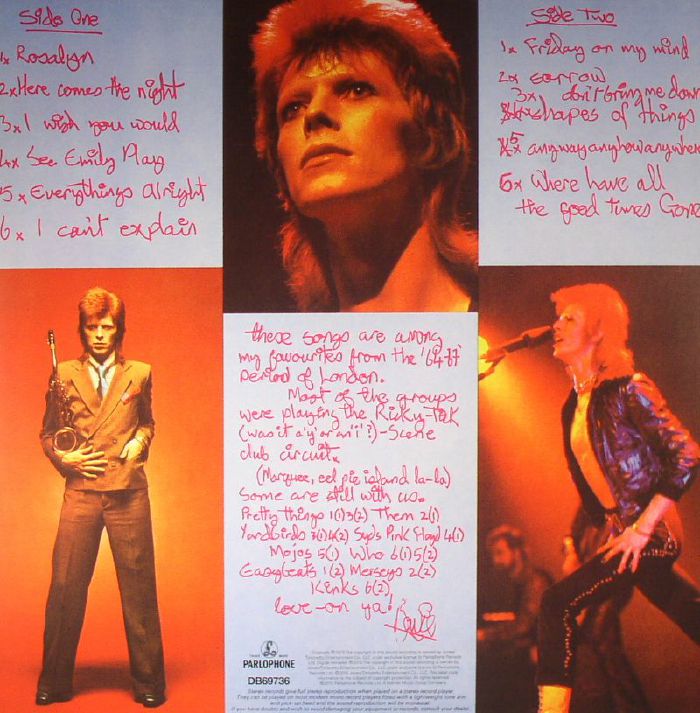 Side One
1x Rosalyn
2x Here comes the night
3x I wish you would
4x See Emily Play
5x Everythings alright
6x I can't explain
Side Two
1x Friday on my mind
2x sorrow
3x don't bring me down
shapes of things
5x anyway anyhow anywhere
6x Where have all
the good times Gone
these songs are among
my favourites from the '64-67
period of London.
Most of the groups
were playing the Ricky-Tick
(was it a 'y' or an 'i'?)-Scene
club circuit.
(Marquee, eel pie island la-la)
Some are still with us.
Pretty things 1(1)3(2) Them 2(1)
Yardbirds 3(1)4(2) Syd's Pink Floyd 4(1)
Mojos 5(1) Who 6(1)5(2)
Easybeats 1(2) Merseys 2(2)
Kinks 6(2)
love-on ya!
PARLOPHONE
DB69736
Stereo records give full stereo reproduction when played on a stereo record player.